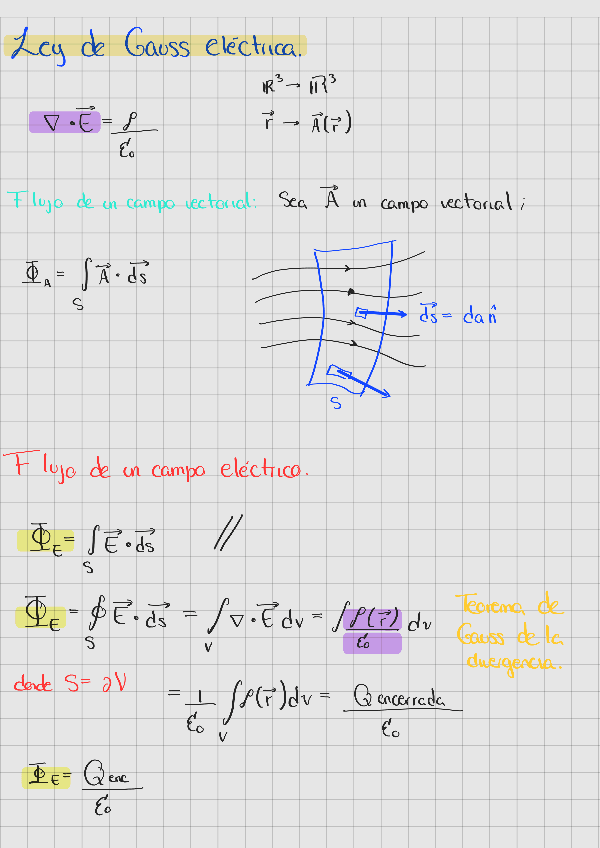 Ley de Gauss eléctrica.
ℝ³ → ℝ³
∇ · E⃗ = ρ/ε₀
r⃗ → A⃗(r⃗)
Flujo de un campo vectorial: Sea A⃗ un campo vectorial;
Φ_A = ∫_S A⃗ · ds⃗
ds⃗ = da n̂
S
Flujo de un campo eléctrico.
Φ_E = ∫_S E⃗ · ds⃗ //
Φ_E = ∮_S E⃗ · ds⃗ = ∫_V ∇ · E⃗ dv = ∫ ρ(r⃗)/ε₀ dv
Teorema de
Gauss de la
divergencia.
donde S = ∂V
= 1/ε₀ ∫_V ρ(r⃗) dv = Q encerrada/ε₀
Φ_E = Q enc/ε₀